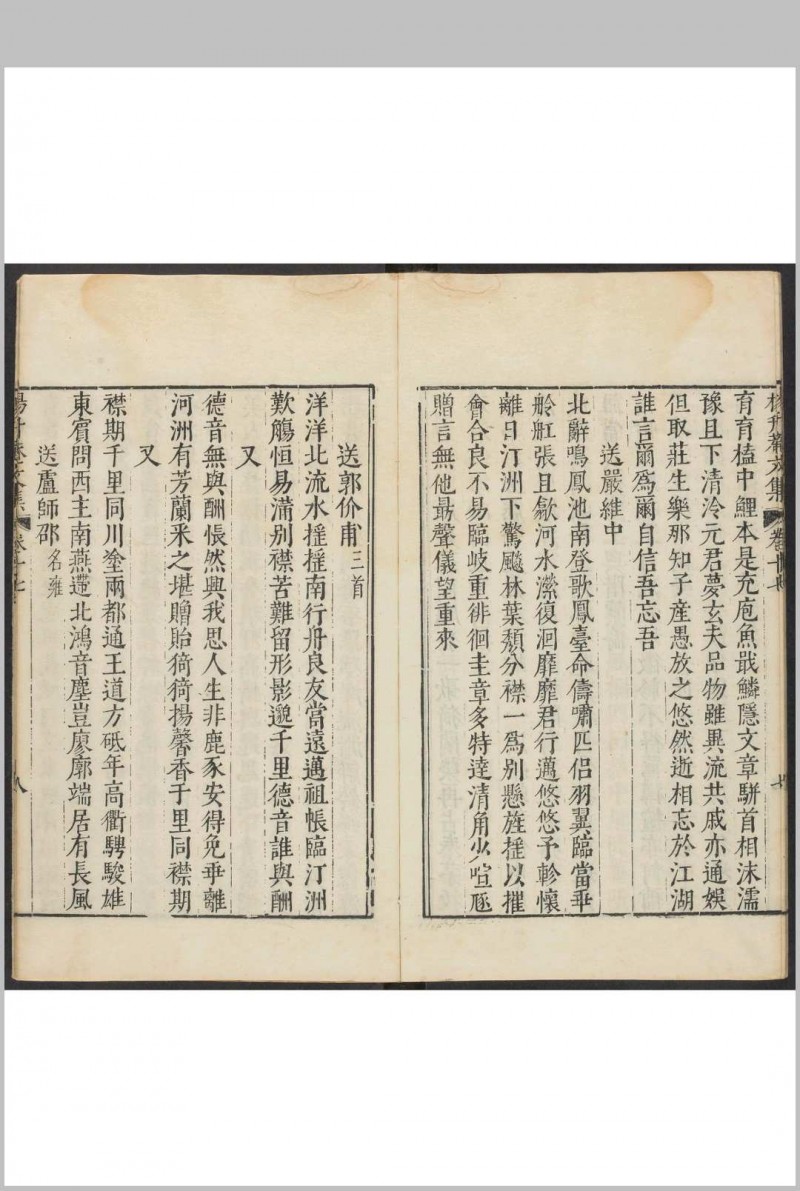 楊升菴文集 卷十七 七
育育橀中鯉本是充庖魚戢鱗隱文章駢首相沬濡
豫且下清泠元君夢玄夫品物雖異流共戚亦通娛
但取莊生樂那知子產愚放之悠然逝相忘於江湖
誰言爾爲爾自信吾忘吾
送嚴維中
北辭鳴鳳池南登歌鳳臺命儔嘯匹侶羽翼臨當乖
舲舡張且歙河水瀠復洄靡靡君行邁悠悠予軫懷
離日汀洲下驚飈林葉頽分襟一爲別懸旌搖以摧
會合良不易臨岐重徘徊圭章多特達清角少喧豗
贈言無他最聲儀望重來
送郭价甫三首
洋洋北流水搖搖南行舟良友當遠邁祖帳臨汀洲
歎觴恒易滿別襟苦難留形影邈千里德音誰與酬
又
德音無與酬悵然興我思人生非鹿豕安得免乖離
河洲有芳蘭采之堪贈貽猗猗揚馨香千里同襟期
又
襟期千里同川塗兩都通王道方砥年高衢騁駿雄
東賓問西主南燕遭北鴻音塵豈廖廓端居有長風
送盧師邵名雍
楊升菴文集 卷十七 八